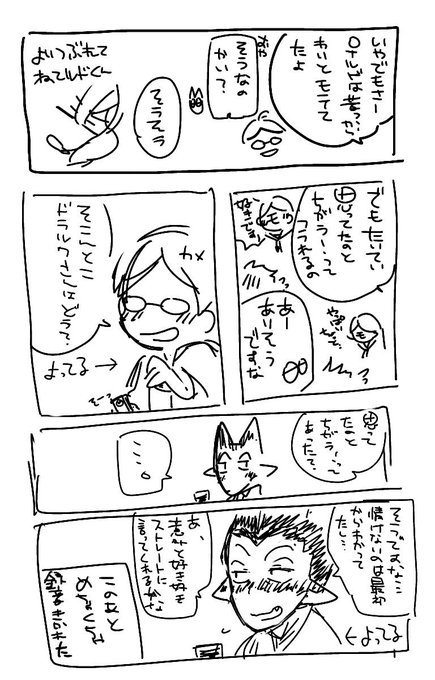 いやでもさー
ロナルドは昔っから
わりとモテてた
たよ
そうなの
かい？
そうそう
よいつぶれて
ねてルドくん
でもたいてい
思ってたのと
ちがうー…って
フラれるの
好きです
あー
ありそう
ですな
そこんとこ
ドラルクさんはどう？
カメ
よってる→
思って
たのと
ちがうーって
あった？
…。
そうですな…
情けないのは最初
からわかって
たし…
あ、
意外と好き好き
ストレートに
言ってくれるかな
←よってる
このあと
めちゃくちゃ